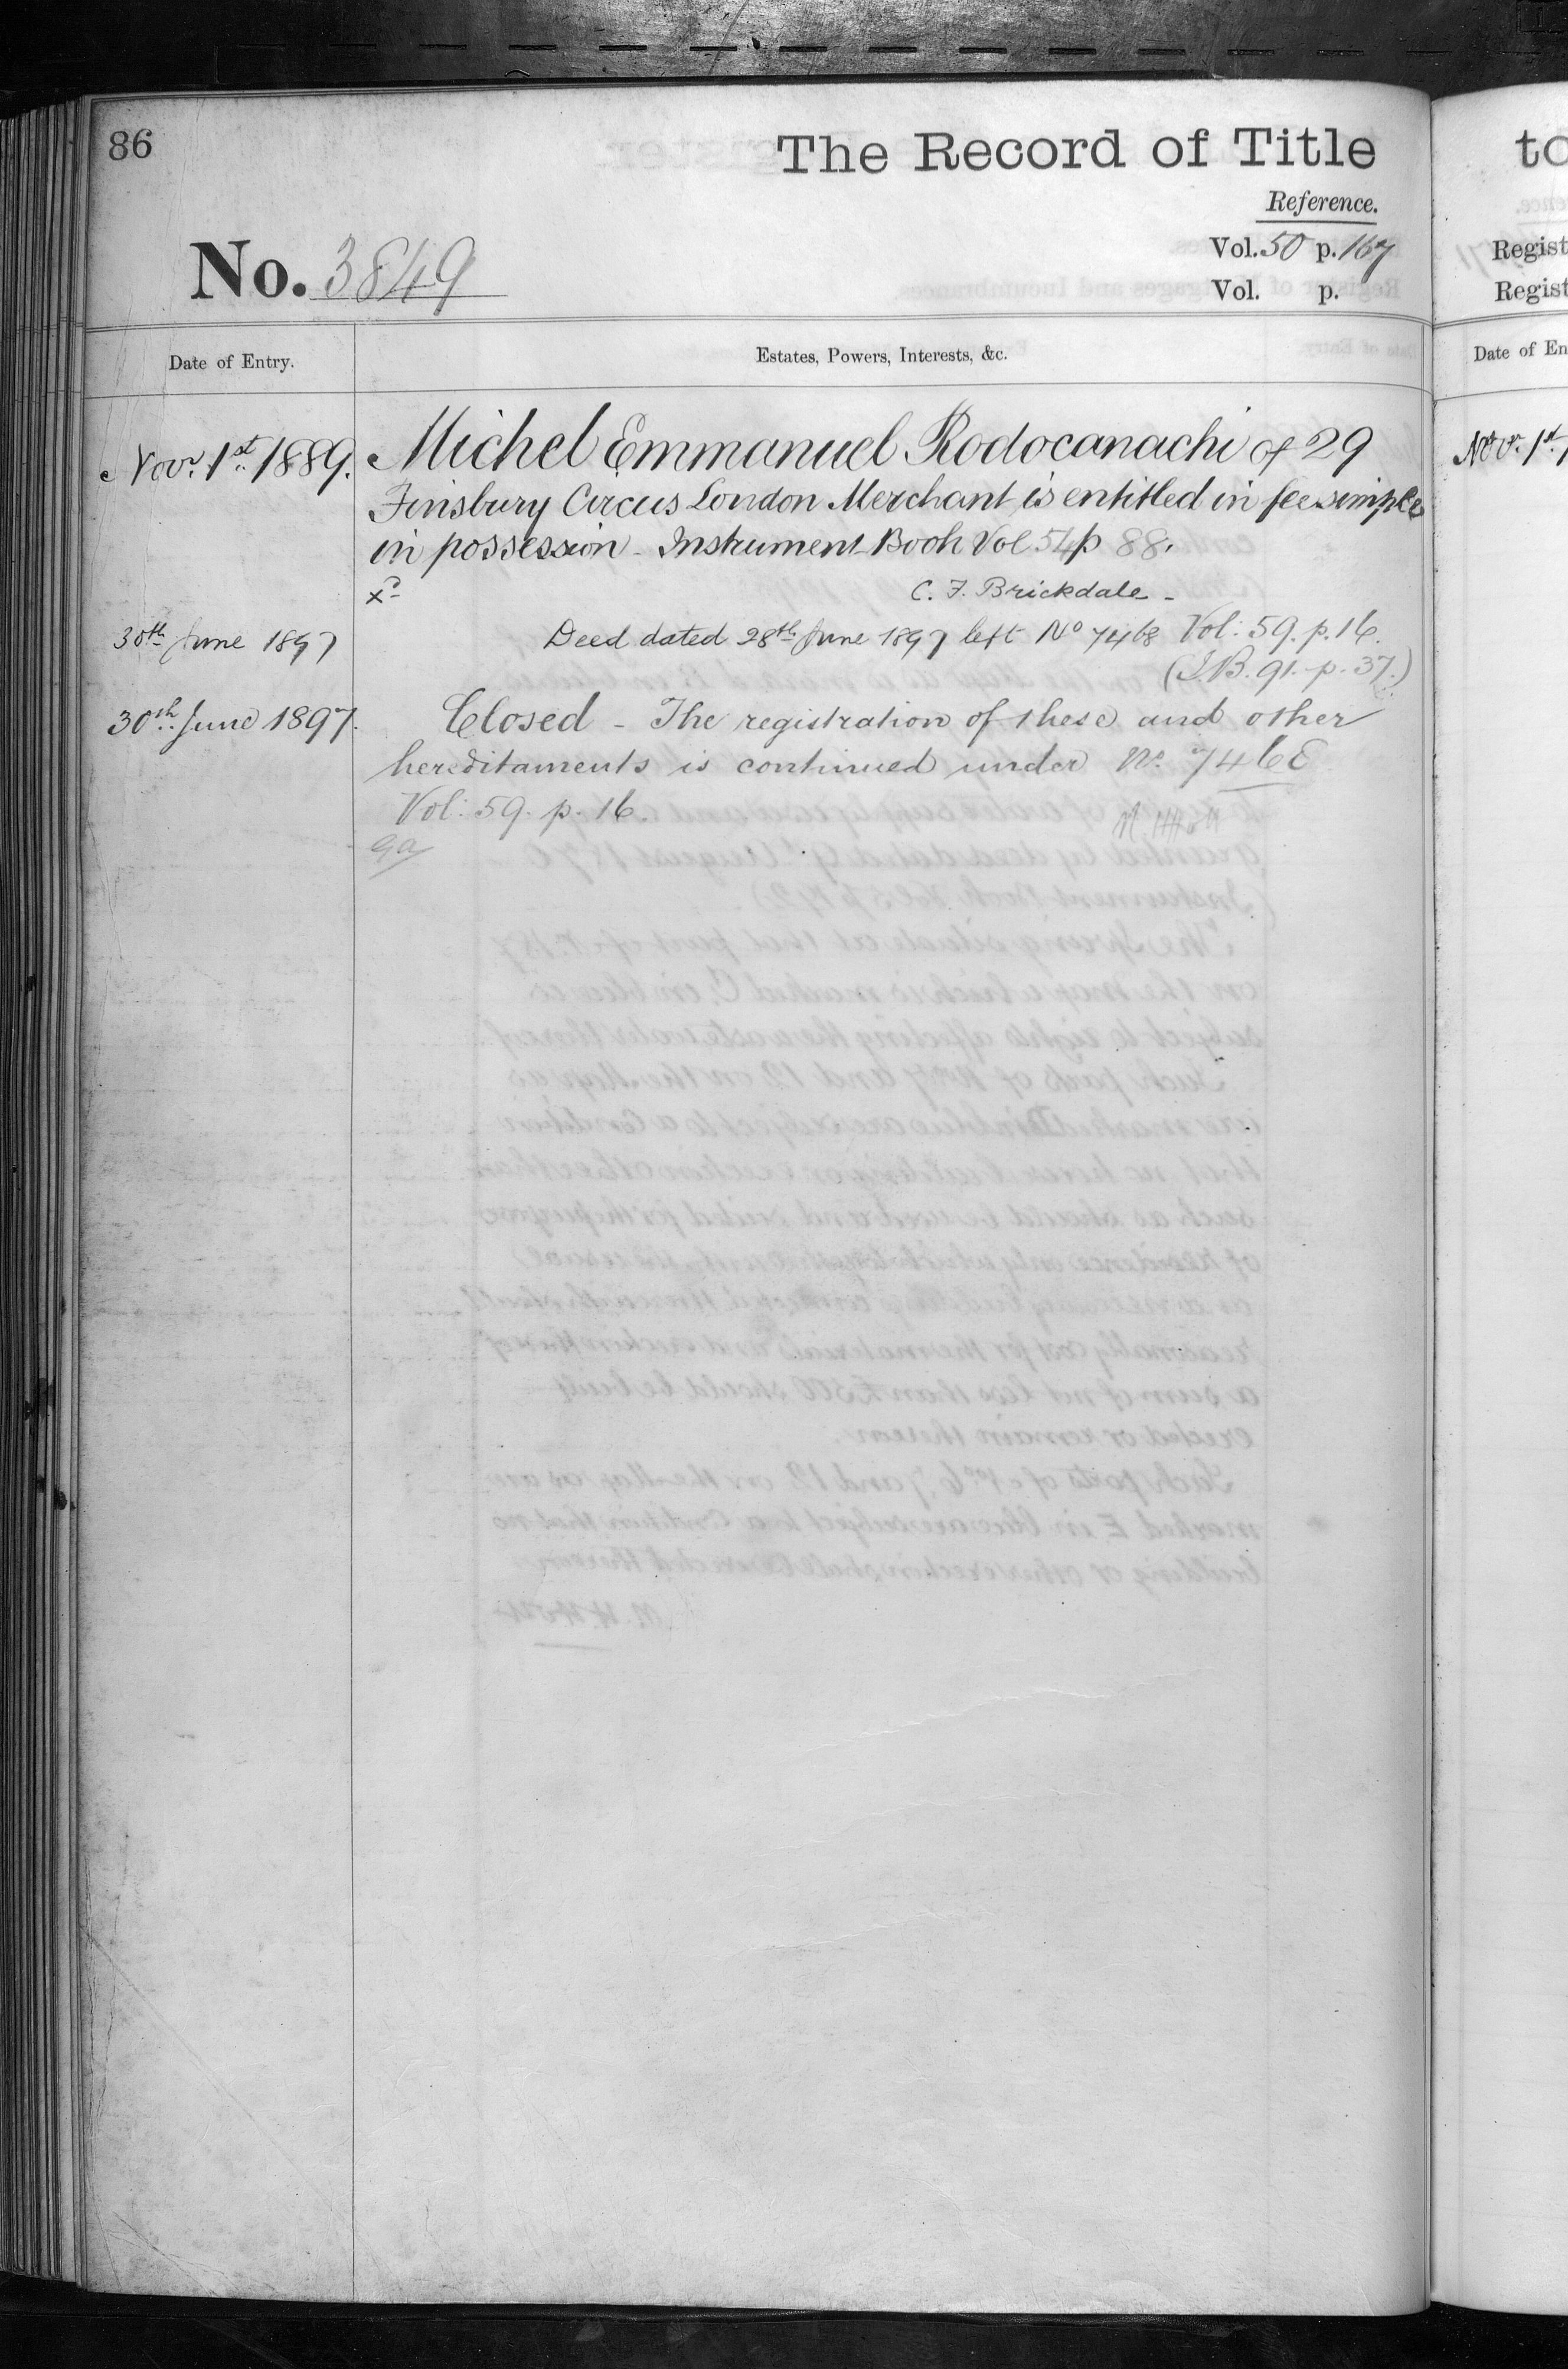 86
The Record of Title
Reference.
No. 3849
Vol. 50 p. 167
Vol. p.
Date of Entry.
Estates, Powers, Interests, &c.
Novr. 1st. 1889.
Michel Emmanuel Rodocanachi of 29
Finsbury Circus London Merchant is entitled in fee simple
in possession - Instrument Book Vol 54 p 88.
C. F. Brickdale -
30th June 1897
Deed dated 28th June 1897 left No 7468 Vol: 59. p. 16.
(I.B. 91. p. 37.)
30th. June 1897.
Closed - The registration of these and other
hereditaments is continued under No. 7468
Vol: 59. p. 16.
to
Regist
Regist
Date of En
Novr. 1st.